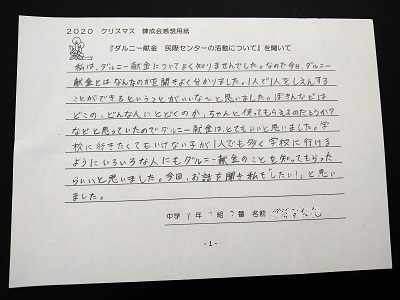 2020 クリスマス 錬成会感想用紙
『ダルニー献金 民際センターの活動について』を聞いて
私は、ダルニー献金についてよく知りませんでした。なので今日、ダルニー
献金とはなんなのかを聞きよく分かりました。1人で1人をしえんする
ことができるというところがいいな〜と思いました。ぼきんなどは
どこの、どんな人にとどくのか、ちゃんと使ってもらえるのだろうか?
などと思っていたのでダルニー献金は、とてもいいと思いました。学
校に行きたくてもいけない子が1人でも多く学校に行ける
ようにいろいろな人にもダルニー献金のことを知ってもらった
らいいと思いました。今回、お話を聞き私も「したい!」と思い
ました。
中学 1年 組 番 名前
- 1 -